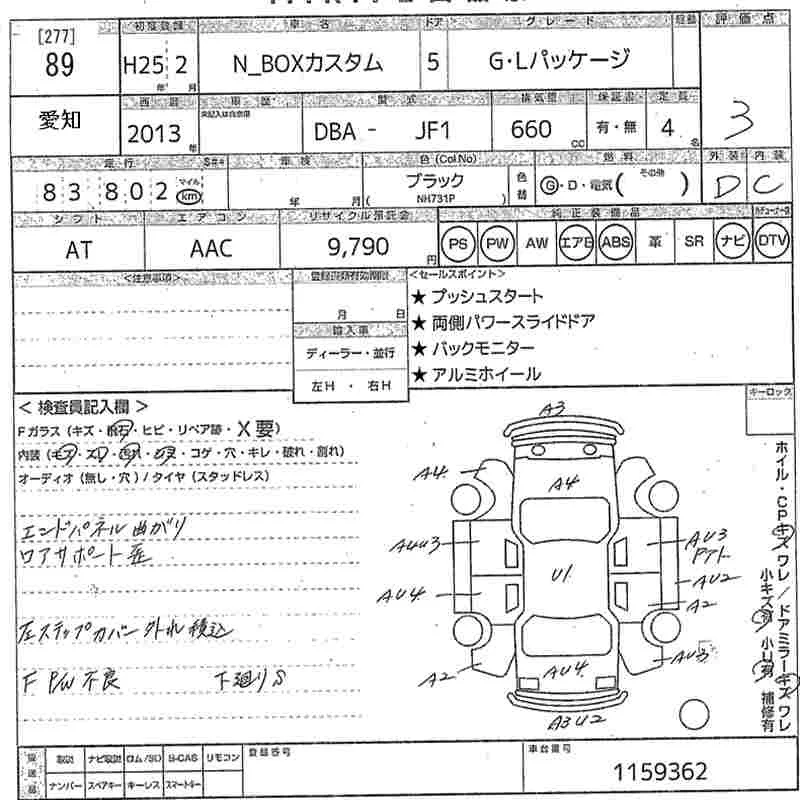 [277]
89
初度登録
車名
ドア
グレード
評価点
H25 2
年 月
N_BOXカスタム
5
G・Lパッケージ
3
愛知
西暦
車歴
型式
排気量
保証書
定員
2013 年
未記入は自家用
DBA - JF1
660 cc
有・無
4 名
走行
車検
色(Col No)
燃料
外装
内装
83802
マイル
km
年 月
ブラック
( NH731P )
色替
G・D・電気( その他 )
D
C
シフト
エアコン
リサイクル預託金
純正装備品
AT
AAC
9,790 円
PS
PW
AW
エアB
ABS
革
SR
ナビ
DTV
<注意事項>
登録書類有効期限
月 日
輸入車
ディーラー・並行
左H ・ 右H
<セールスポイント>
★ プッシュスタート
★ 両側パワースライドドア
★ バックモニター
★ アルミホイール
キーロック
< 検査員記入欄 >
Fガラス(キズ・飛石・ヒビ・リペア跡・X要)
内装(キズ・スレ・汚れ・シミ・コゲ・穴・キレ・破れ・割れ)
オーディオ(無し・穴)/タイヤ(スタッドレス)
エンドパネル曲がり
ロアサポート歪
左ステップカバー外れ積込
F P/W 不良
下廻りS
A3
A4
A4
AUU3
AU3
AU4
U1
AU2
A2
A2
AU4
AU3
A3U2
ホイル・CPキズワレ/ドアミラーキズワレ
小キズ有 小U有 補修有
後送品
取説
ナビ取説
ロム/SD
B-CAS
リモコン
ナンバー
スペアキー
キーレス
スマートキー
登録番号
車台番号
1159362